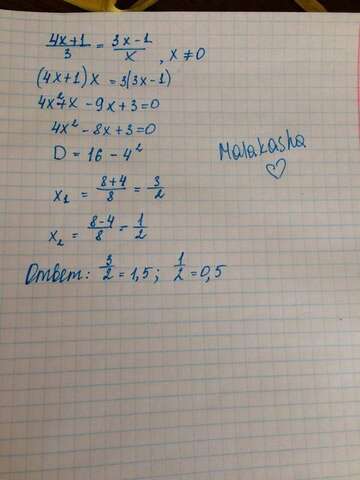 4x+1/3 = 3x-1/x, x ≠ 0
(4x+1)x = 3(3x-1)
4x²+x -9x+3=0
4x² -8x+3=0
D = 16 - 4²
x₁ = 8+4/8 = 3/2
x₂ = 8-4/8 = 1/2
Ответ: 3/2 = 1,5; 1/2 = 0,5
Malakasha
♡